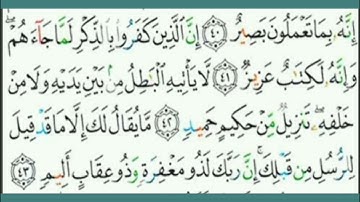 إِنَّهُۥ بِمَا تَعْمَلُونَ بَصِيرٌ ﴿٤٠﴾ إِنَّ ٱلَّذِينَ كَفَرُوا۟ بِٱلذِّكْرِ لَمَّا جَآءَهُمْ ۖ
وَإِنَّهُۥ لَكِتَٰبٌ عَزِيزٌ ﴿٤١﴾ لَّا يَأْتِيهِ ٱلْبَٰطِلُ مِنۢ بَيْنِ يَدَيْهِ وَلَا مِنْ
خَلْفِهِۦ ۖ تَنزِيلٌ مِّنْ حَكِيمٍ حَمِيدٍ ﴿٤٢﴾ مَّا يُقَالُ لَكَ إِلَّا مَا قَدْ قِيلَ
لِلرُّسُلِ مِن قَبْلِكَ ۚ إِنَّ رَبَّكَ لَذُو مَغْفِرَةٍ وَذُو عِقَابٍ أَلِيمٍ ﴿٤٣﴾